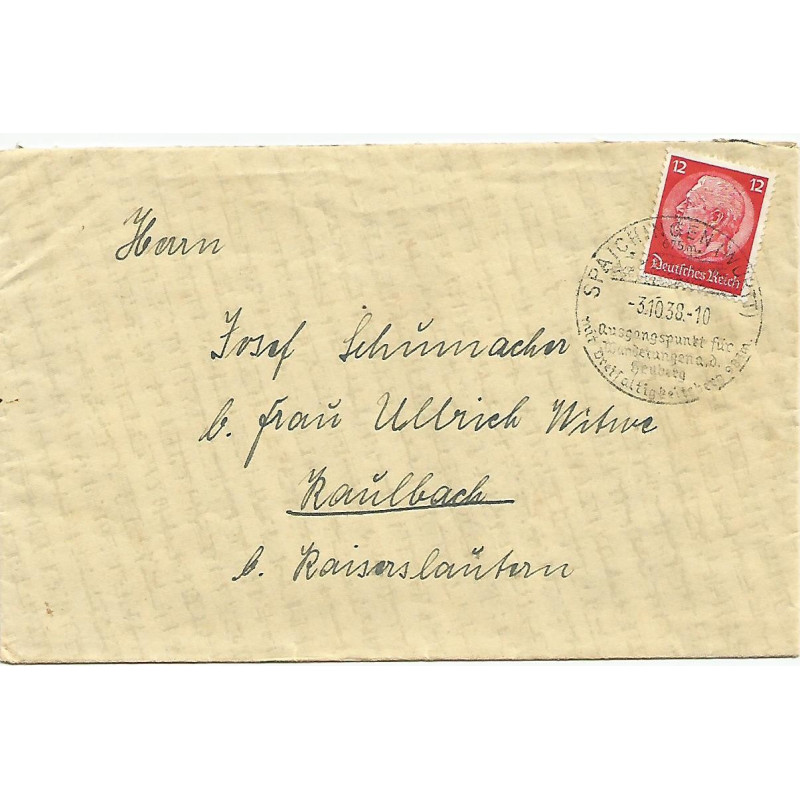 12 12
Deutsches Reich
SPAICHINGEN (WÜRTT)
-3.10.38.-10
Ausgangspunkt für
Wanderungen a.d.
Heuberg
mit Dreifaltigkeitsberg
Herrn
Josef Schumacher
b. Frau Ullrich Witwe
Kaulbach
b. Kaiserslautern